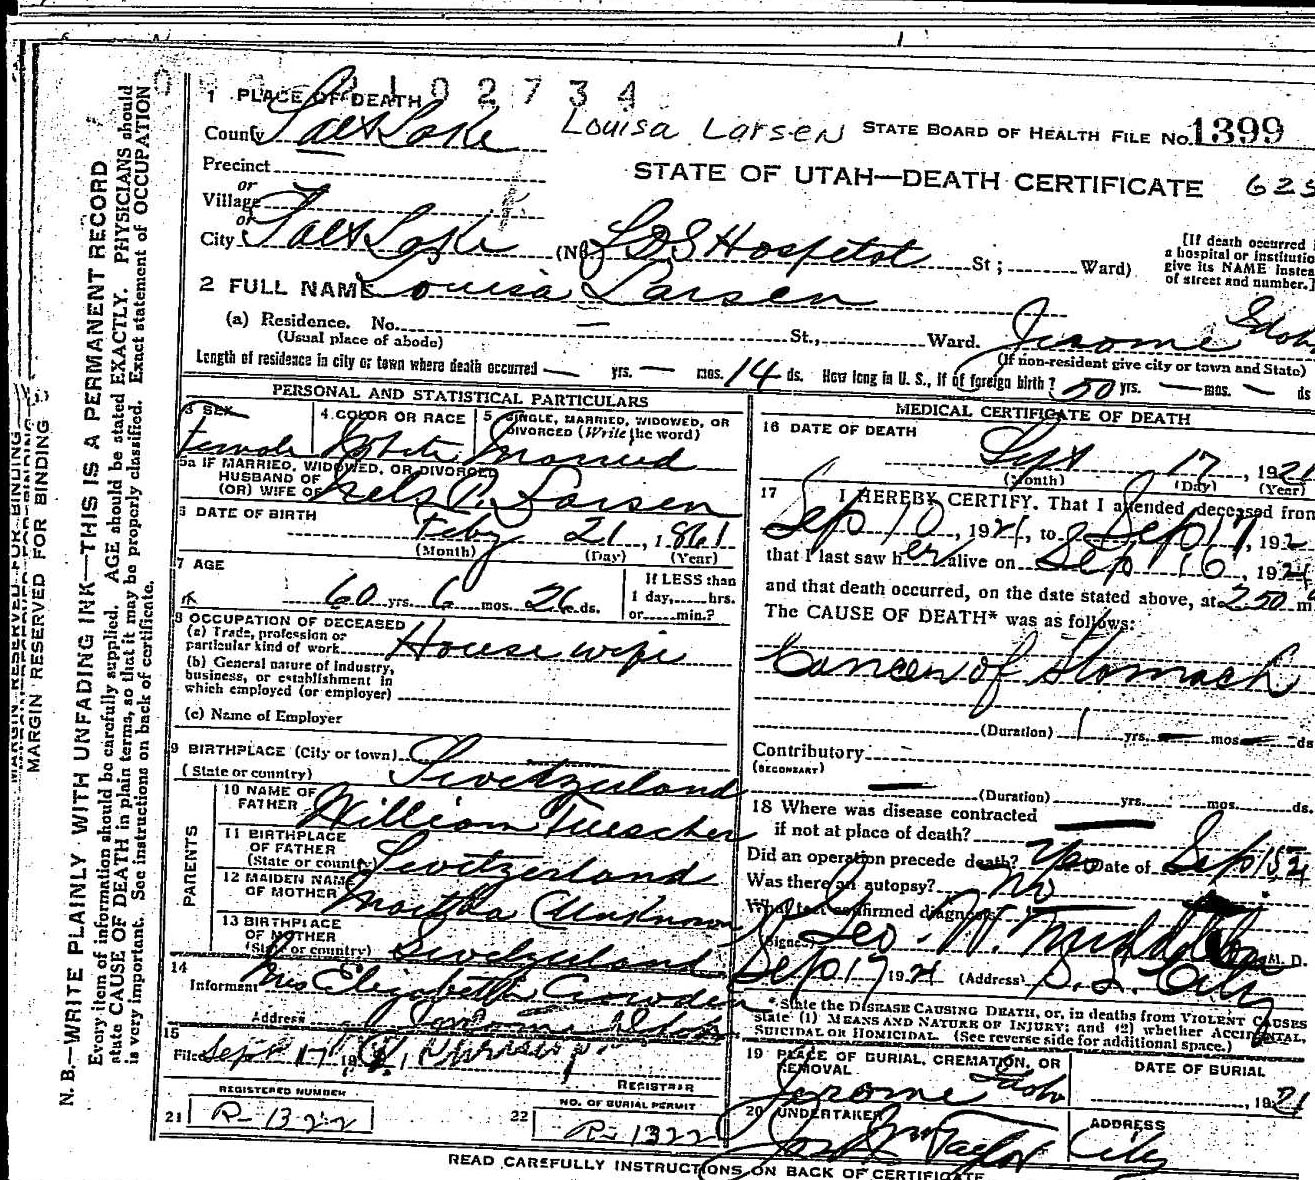 102734
1 PLACE OF DEATH
County Salt Lake
Louisa Larsen
STATE BOARD OF HEALTH FILE No. 1399
Precinct
or
Village
or
City Salt Lake (No. LDS Hospital St; Ward)
STATE OF UTAH—DEATH CERTIFICATE 625
[If death occurred
a hospital or institutio
give its NAME instea
of street and number.]
2 FULL NAME Louisa Larsen
(a) Residence. No. — St., Ward. Jerome Idah
(Usual place of abode) (If non-resident give city or town and State)
Length of residence in city or town where death occurred — yrs. — mos. 14 ds. How long in U. S., if of foreign birth? 50 yrs. — mos. — ds
PERSONAL AND STATISTICAL PARTICULARS
3 SEX Female
4 COLOR OR RACE White
5 SINGLE, MARRIED, WIDOWED, OR
DIVORCED (Write the word) Married
5a IF MARRIED, WIDOWED, OR DIVORCED
HUSBAND OF
(OR) WIFE OF Nels P. Larsen
6 DATE OF BIRTH Feby 21, 1861
(Month) (Day) (Year)
7 AGE
60 yrs. 6 mos. 26 ds.
If LESS than
1 day,......hrs.
or......min.?
8 OCCUPATION OF DECEASED
(a) Trade, profession or
particular kind of work House wife
(b) General nature of industry,
business, or establishment in
which employed (or employer)
(c) Name of Employer
9 BIRTHPLACE (City or town)
(State or country) Switzerland
PARENTS
10 NAME OF
FATHER William Tuescher
11 BIRTHPLACE
OF FATHER
(State or country) Switzerland
12 MAIDEN NAME
OF MOTHER Martha Unknown
13 BIRTHPLACE
OF MOTHER
(State or country) Switzerland
14
Informant Mrs Elizabeth Crowden
Address Jerome Idaho
15
Filed Sept 17
REGISTRAR
REGISTERED NUMBER
21 R-1322
NO. OF BURIAL PERMIT
22 R-1322
MEDICAL CERTIFICATE OF DEATH
16 DATE OF DEATH
Sept 17, 1921
(Month) (Day) (Year)
17 I HEREBY CERTIFY. That I attended deceased from
Sep 10, 1921, to Sep 17, 192
that I last saw her alive on Sep 16, 1921
and that death occurred, on the date stated above, at 250 m
The CAUSE OF DEATH* was as follows:
Cancer of Stomach
(Duration) 1 yrs. — mos. — ds
Contributory —
(SECONDARY)
— (Duration) yrs. mos. ds.
18 Where was disease contracted
if not at place of death?
Did an operation precede death? Yes Date of Sep 15
Was there an autopsy? No
What test confirmed diagnosis?
(Signed) Geo. W. Middleton M. D.
Sep 17 1921 (Address) S. L. City
* State the DISEASE CAUSING DEATH, or, in deaths from VIOLENT CAUSES
state (1) MEANS AND NATURE OF INJURY; and (2) whether ACCIDENTAL,
SUICIDAL OR HOMICIDAL. (See reverse side for additional space.)
19 PLACE OF BURIAL, CREMATION, OR
REMOVAL
Jerome Idaho
DATE OF BURIAL
, 1921
20 UNDERTAKER
Jos Wm Taylor
ADDRESS
City
READ CAREFULLY INSTRUCTIONS ON BACK OF CERTIFICATE
MARGIN RESERVED FOR BINDING
MARGIN RESERVED FOR BINDING
N. B.—WRITE PLAINLY WITH UNFADING INK—THIS IS A PERMANENT RECORD
Every item of information should be carefully supplied. AGE should be stated EXACTLY. PHYSICIANS should
state CAUSE OF DEATH in plain terms, so that it may be properly classified. Exact statement of OCCUPATION
is very important. See instructions on back of certificate.